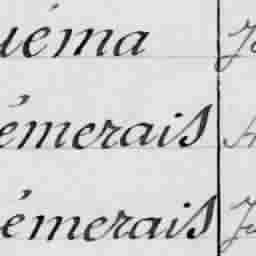 uéma
émerais
émerais